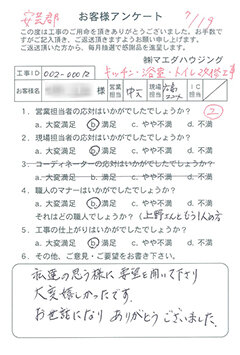 安芸郡
お客様アンケート
7/19
この度は工事のご用命を頂きありがとうございました。お手数で
すがご記入頂き、ご返送頂きますようお願い申し上げます。
ご返送頂いた方から、毎月抽選で感謝品を進呈します。
㈱マエダハウジング
工事ID 002-00012 キッチン・浴室・トイレ改修工事
お客様名 営業担当 現場担当 IC担当
1. 営業担当者の応対はいかがでしたでしょうか?
②
a. 大変満足 b. 満足 c. やや不満 d. 不満
2. 現場担当者の応対はいかがでしたでしょうか?
a. 大変満足 b. 満足 c. やや不満 d. 不満
3. コーディネーターの応対はいかがでしたでしょうか?
a. 大変満足 b. 満足 c. やや不満 d. 不満
4. 職人のマナーはいかがでしたでしょうか?
a. 大変満足 b. 満足 c. やや不満 d. 不満
それはどの職人でしょうか?(上野さんともう1人の方)
5. 工事の仕上がりはいかがでしたでしょうか?
a. 大変満足 b. 満足 c. やや不満 d. 不満
6. その他、ご意見・ご要望をお書き下さい。
私達の思う様に希望を聞いて下さり
大変嬉しかったです。
お世話になりありがとうございました。